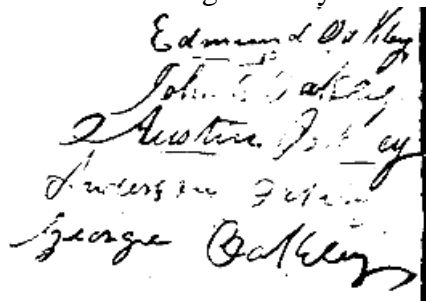 Edmund Oakley
John Oakley
Austin Oakley
Anderson
George Oakley